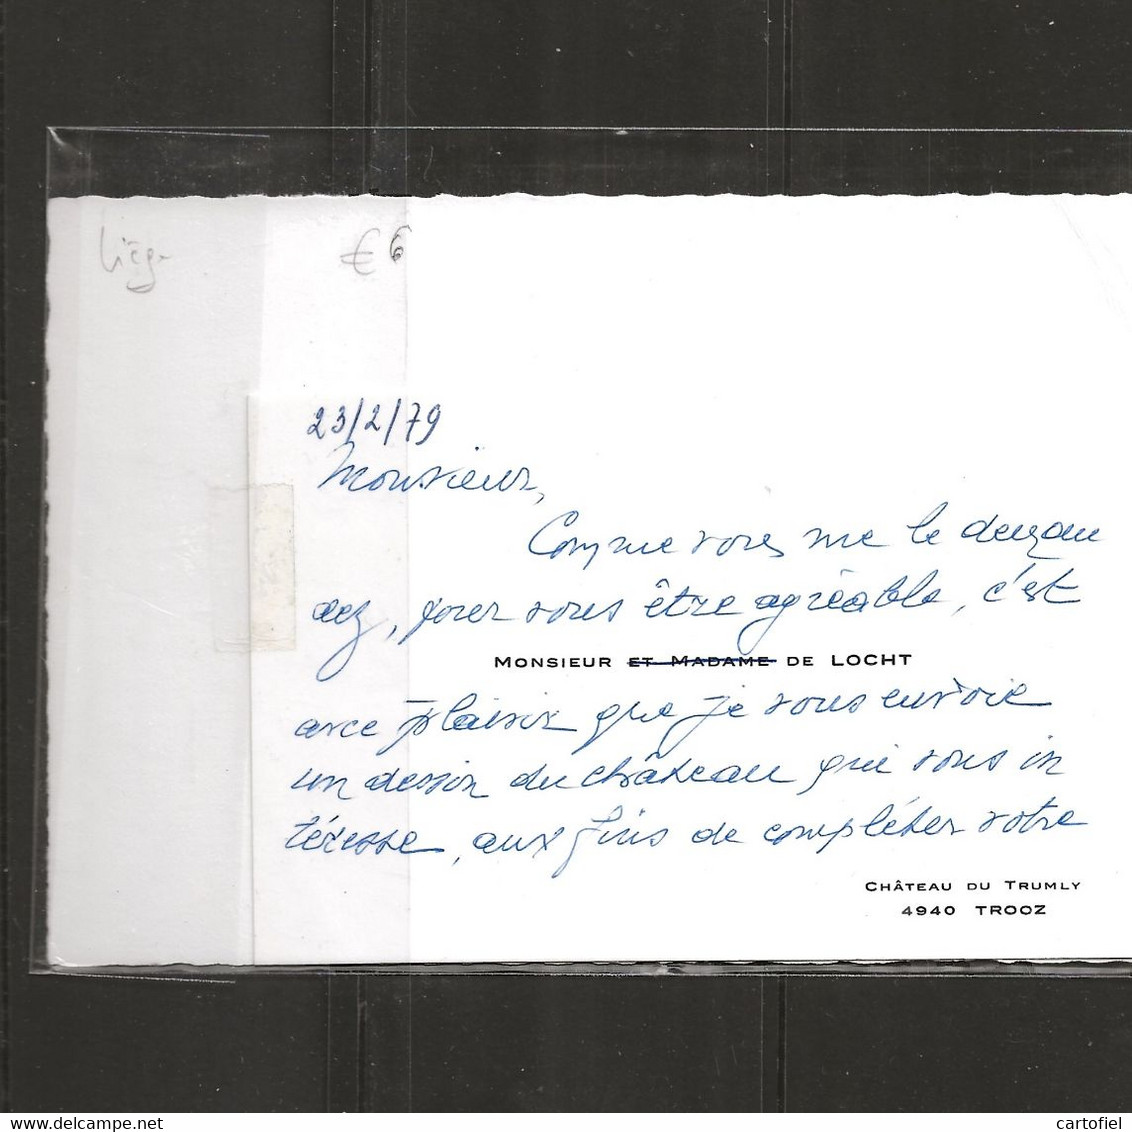 Liège
€ 6
23/2/79
Monsieur,
Comme vous me le deman
dez, pour vous être agréable, c'est
MONSIEUR ET MADAME DE LOCHT
avec plaisir que je vous envoie
un dessin du château qui vous in
téresse, aux fins de compléter votre
CHÂTEAU DU TRUMLY
4940 TROOZ
www.delcampe.net
cartofiel